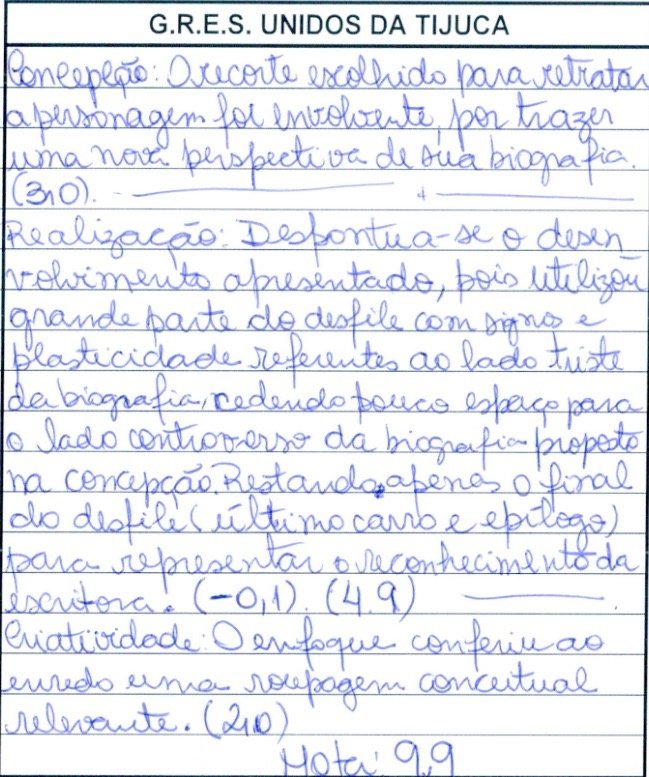 G.R.E.S. UNIDOS DA TIJUCA
Concepção: O recorte escolhido para retratar
a personagem foi envolvente, por trazer
uma nova perspectiva de sua biografia.
(3,0).
Realização: Despontua-se o desen
volvimento apresentado, pois utilizou
grande parte do desfile com signos e
plasticidade referentes ao lado triste
da biografia, cedendo pouco espaço para
o lado controverso da biografia proposto
na concepção. Restando apenas o final
do desfile (último carro e epílogo)
para representar o reconhecimento da
escritora. (-0,1). (4.9)
Criatividade: O enfoque conferiu ao
enredo uma roupagem conceitual
relevante. (2,0)
Nota: 9,9